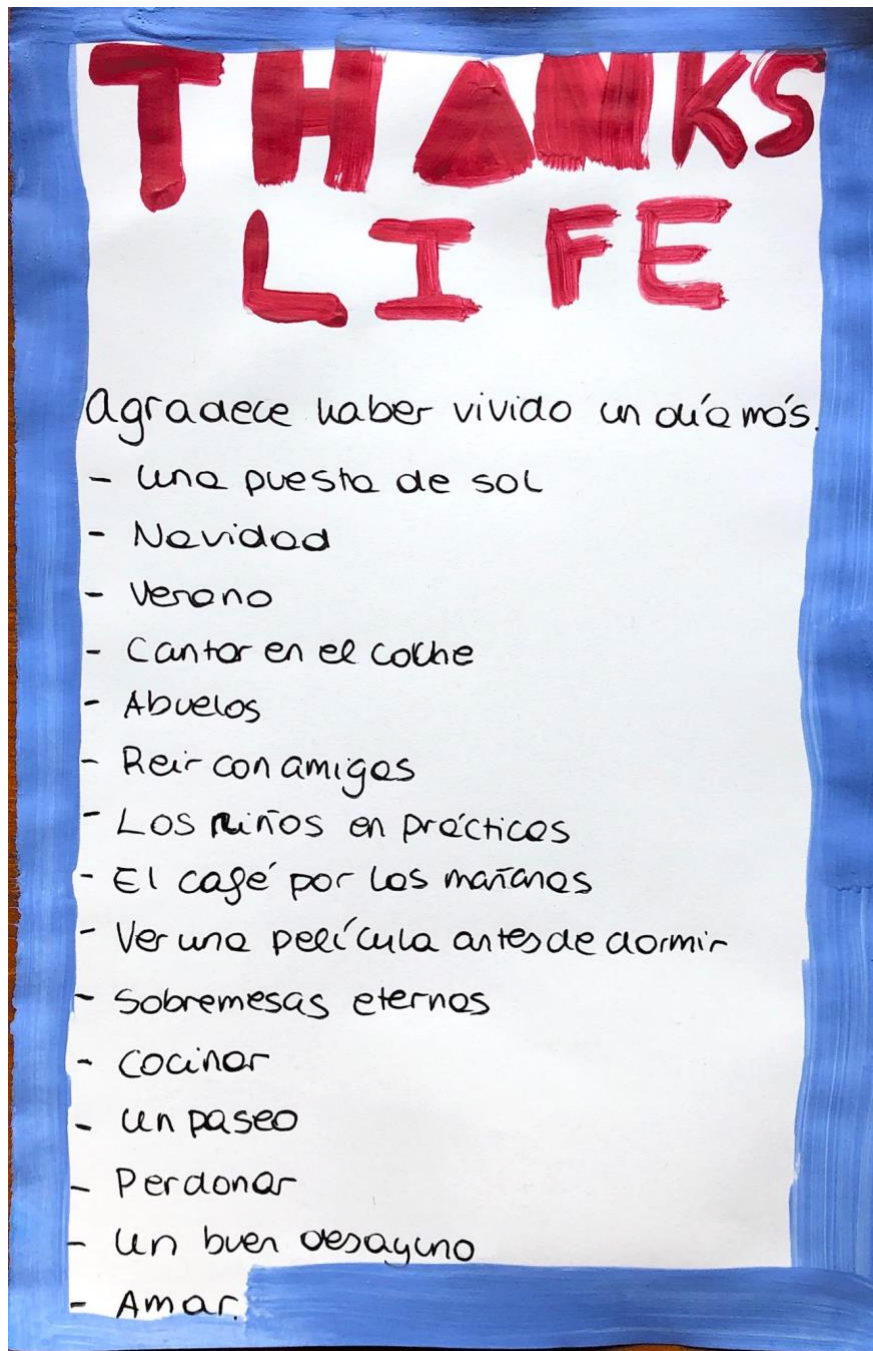 THANKS
LIFE
Agradece haber vivido un día más.
- Una puesta de sol
- Navidad
- Verano
- Cantar en el coche
- Abuelos
- Reir con amigos
- Los niños en prácticas
- El café por las mañanas
- Ver una película antes de dormir
- Sobremesas eternas
- Cocinar
- Un paseo
- Perdonar
- Un buen desayuno
- Amar.